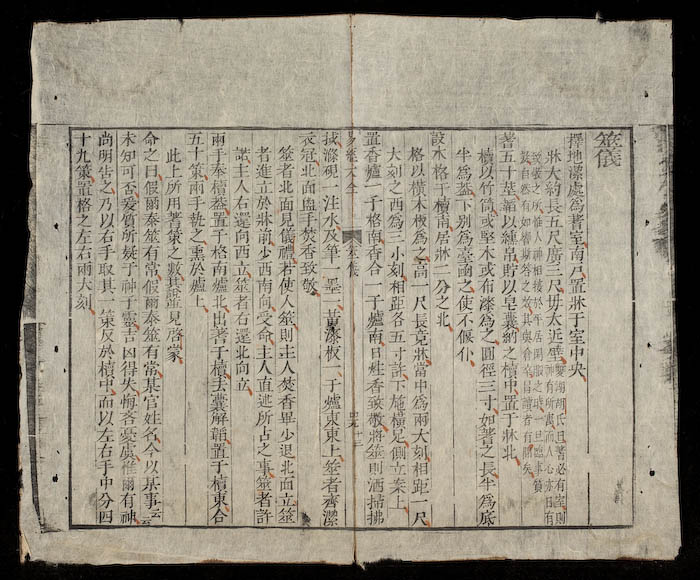 筮儀
擇地潔處爲蓍室南戶置牀于室中央
牀大約長五尺廣三尺毋太近壁
雙湖胡氏曰蓍必有室則
神有所棲而人心亦日有
致敬之所惟人神相接於平居閒服之時一旦臨事質
疑自然有如響斯答之其與倉卒易瀆者有間矣
蓍五十莖韜以纁帛貯以皁囊納之櫝中置于牀北
櫝以竹筒或堅木或布漆爲之圓徑三寸如蓍之長半爲底
半爲葢下別爲臺函之使不偃仆
設木格于櫝南居牀二分之北
格以橫木板爲之高一尺長竟牀當中爲兩大刻相距一尺
大刻之西爲三小刻相距各五寸許下施橫足側立案上
置香爐一于格南香合一于爐南日炷香致敬將筮則洒掃拂
易經大全 筮儀 十三
拭滌硯一注水及筆一墨一黃漆板一于爐東東上筮者齊潔
衣冠北面盥手焚香致敬
筮者北面見儀禮若使人筮則主人焚香畢少退北面立筮
者進立於牀前少西南向受命主人直述所占之事筮者許
諾主人右還西向立筮者右還北向立
兩手奉櫝葢置于格南爐北出蓍于櫝去囊解韜置于櫝東合
五十策兩手執之熏於爐上
此上所用蓍策之數其說見啓蒙
命之曰假爾泰筮有常假爾泰筮有常某官姓名今以某事云云
未知可否爰質所疑于神于靈吉凶得失悔吝憂虞惟爾有神
尚明告之乃以右手取其一策反於櫝中而以左右手中分四
十九策置格之左右兩大刻